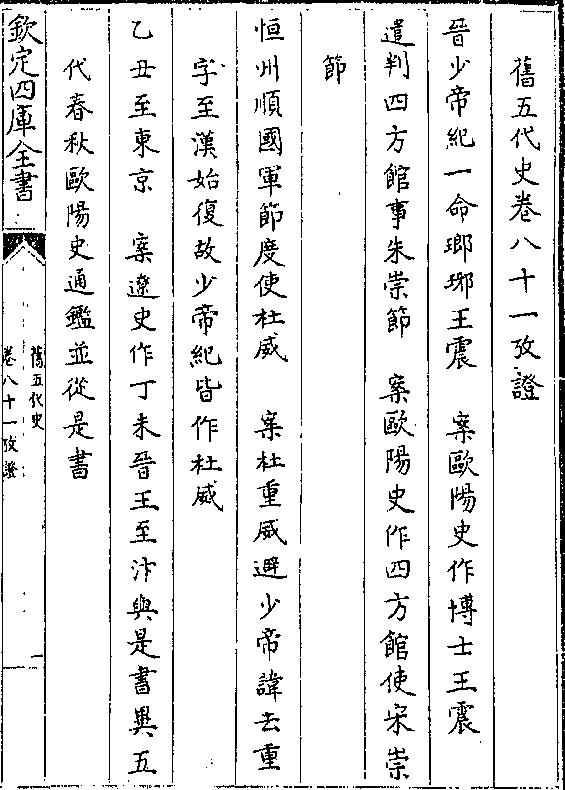 舊五代史卷八十一攷證
晉少帝紀一命瑯琊王震　案歐陽史作博士王震
遣判四方館事朱崇節　案歐陽史作四方館使宋崇
節
恒州順國軍節度使杜威　案杜重威避少帝諱去重
字至漢始復故少帝紀皆作杜威
乙丑至東京　案遼史作丁未晉王至汴與是書異五
代春秋歐陽史通鑑並從是書
欽定四庫全書
舊五代史
卷八十一攷證